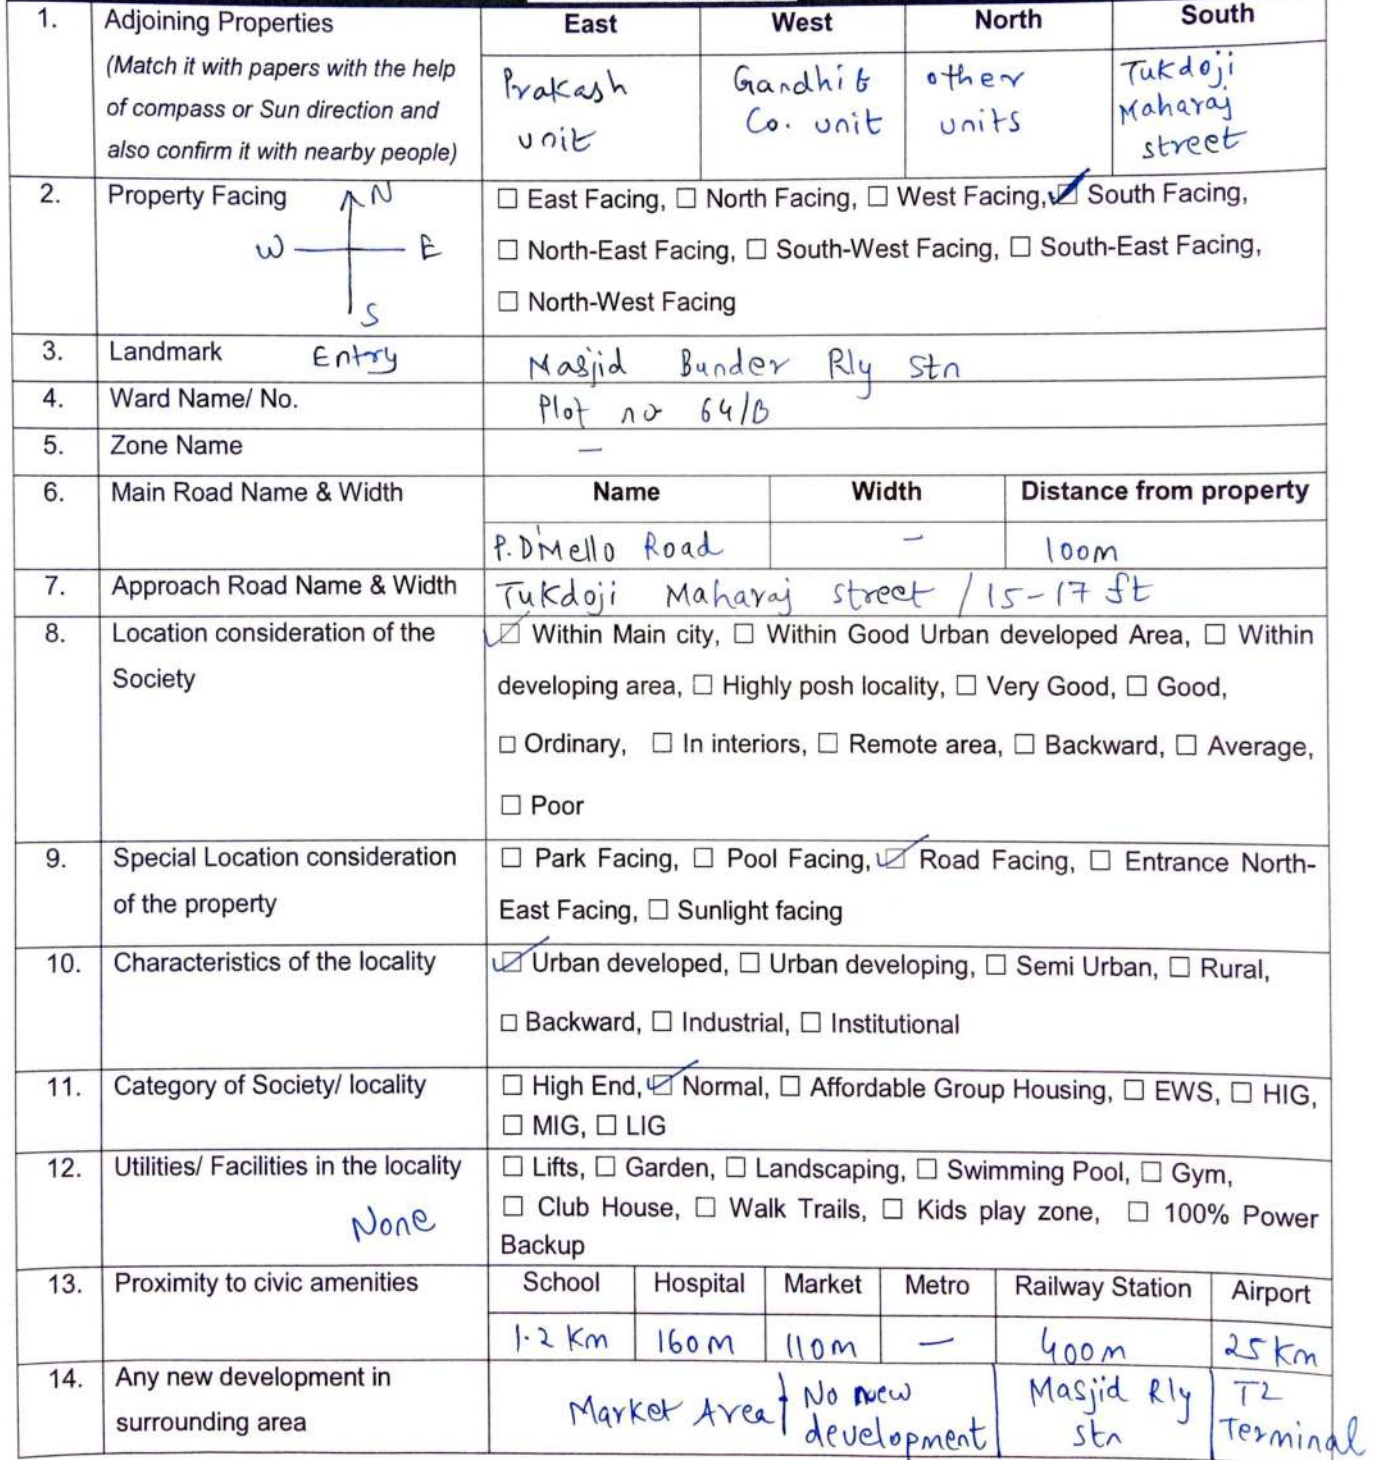 1. Adjoining Properties East West North South
(Match it with papers with the help
of compass or Sun direction and
also confirm it with nearby people)
Prakash
unit
Gandhi &
Co. unit
other
units
Tukdoji
Maharaj
street
2. Property Facing
N
W E
S
☐ East Facing, ☐ North Facing, ☐ West Facing, ☑ South Facing,
☐ North-East Facing, ☐ South-West Facing, ☐ South-East Facing,
☐ North-West Facing
3. Landmark Entry Masjid Bunder Rly Stn
4. Ward Name/ No. Plot no 64/B
5. Zone Name —
6. Main Road Name & Width Name Width Distance from property
P. D'Mello Road — 100m
7. Approach Road Name & Width Tukdoji Maharaj street / 15-17 ft
8. Location consideration of the
Society
☑ Within Main city, ☐ Within Good Urban developed Area, ☐ Within
developing area, ☐ Highly posh locality, ☐ Very Good, ☐ Good,
☐ Ordinary, ☐ In interiors, ☐ Remote area, ☐ Backward, ☐ Average,
☐ Poor
9. Special Location consideration
of the property
☐ Park Facing, ☐ Pool Facing, ☑ Road Facing, ☐ Entrance North-
East Facing, ☐ Sunlight facing
10. Characteristics of the locality
☑ Urban developed, ☐ Urban developing, ☐ Semi Urban, ☐ Rural,
☐ Backward, ☐ Industrial, ☐ Institutional
11. Category of Society/ locality
☐ High End, ☑ Normal, ☐ Affordable Group Housing, ☐ EWS, ☐ HIG,
☐ MIG, ☐ LIG
12. Utilities/ Facilities in the locality
None
☐ Lifts, ☐ Garden, ☐ Landscaping, ☐ Swimming Pool, ☐ Gym,
☐ Club House, ☐ Walk Trails, ☐ Kids play zone, ☐ 100% Power
Backup
13. Proximity to civic amenities School Hospital Market Metro Railway Station Airport
1.2 Km 160m 110m — 400m 25 Km
14. Any new development in
surrounding area
Market Area
No new
development
Masjid Rly
stn
T2
Terminal